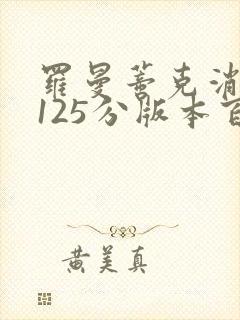 羅曼蒂克消
125分版本百
黄美真